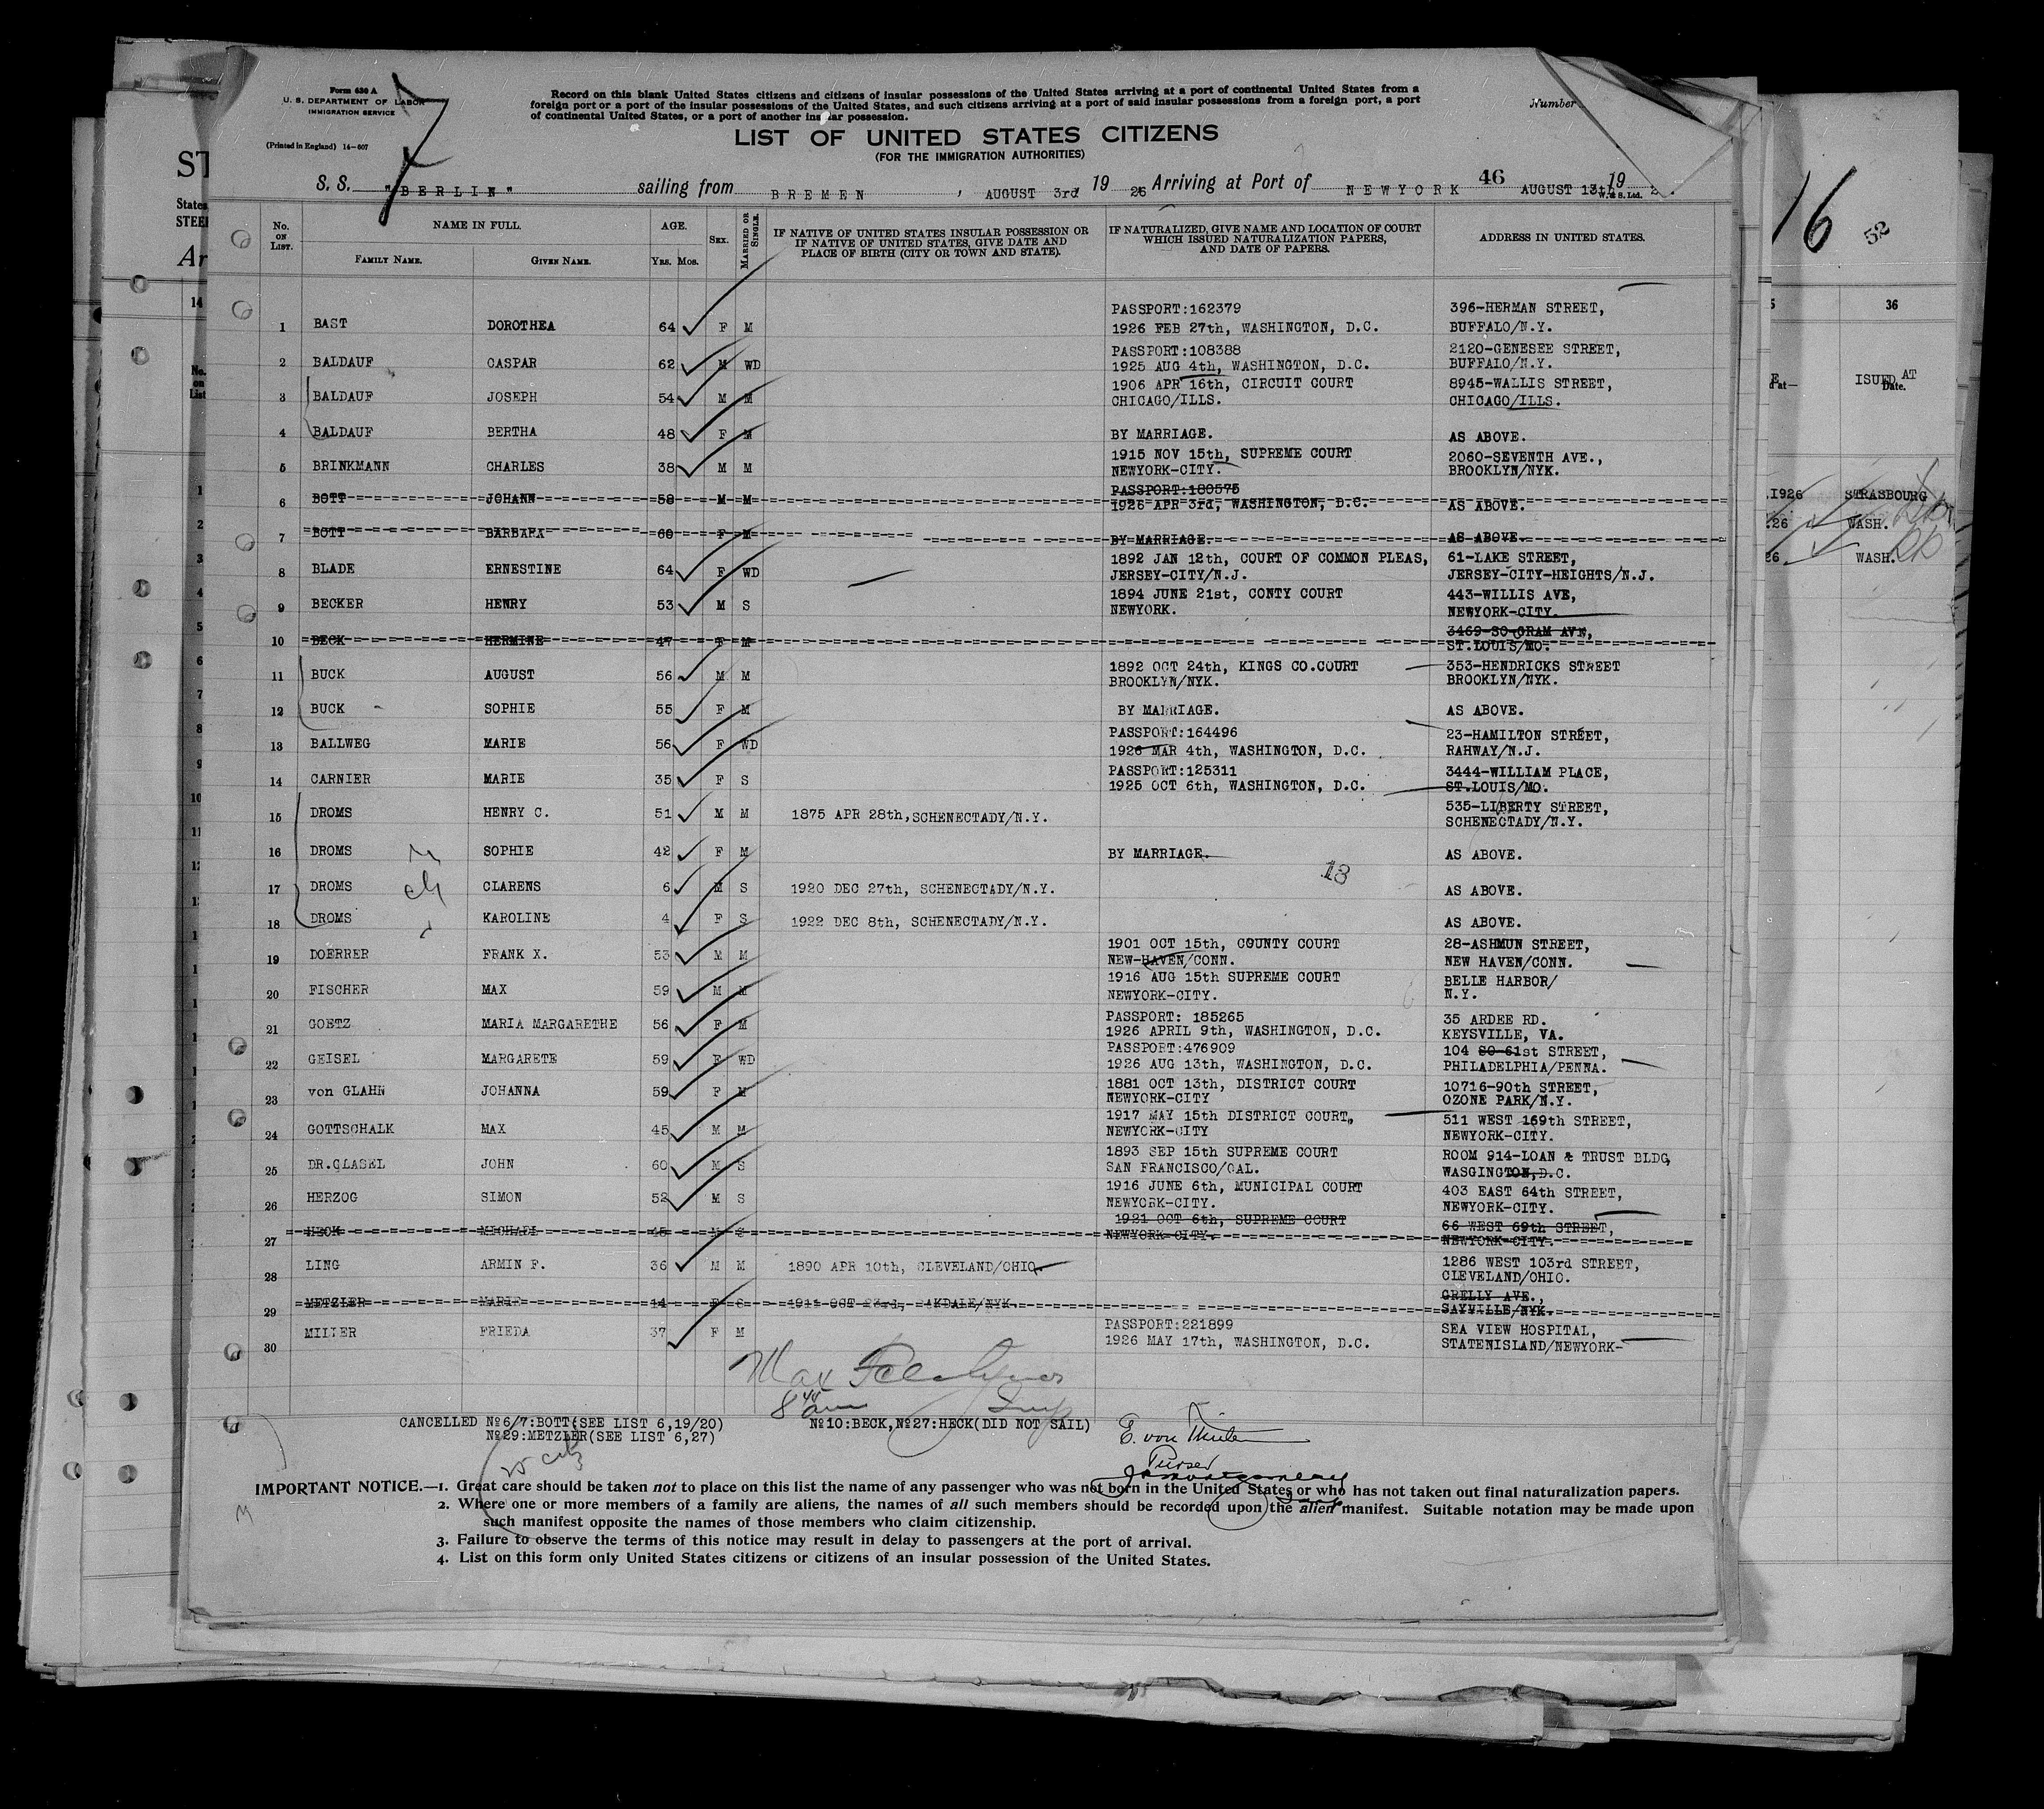 Form 630 A
U. S. DEPARTMENT OF LABOR
IMMIGRATION SERVICE
(Printed in England) 14-607
Record on this blank United States citizens and citizens of insular possessions of the United States arriving at a port of continental United States from a
foreign port or a port of the insular possessions of the United States, and such citizens arriving at a port of said insular possessions from a foreign port, a port
of continental United States, or a port of another insular possession.
Number
LIST OF UNITED STATES CITIZENS
(FOR THE IMMIGRATION AUTHORITIES)
S. S. "BERLIN" sailing from BREMEN, AUGUST 3rd 19 26 Arriving at Port of NEWYORK 46 AUGUST 13th 19
W. & S. Ltd.
No. ON LIST. NAME IN FULL. FAMILY NAME. GIVEN NAME. AGE. YRS. MOS. SEX. MARRIED OR SINGLE. IF NATIVE OF UNITED STATES INSULAR POSSESSION OR IF NATIVE OF UNITED STATES, GIVE DATE AND PLACE OF BIRTH (CITY OR TOWN AND STATE). IF NATURALIZED, GIVE NAME AND LOCATION OF COURT WHICH ISSUED NATURALIZATION PAPERS, AND DATE OF PAPERS. ADDRESS IN UNITED STATES.
PASSPORT:162379 396-HERMAN STREET,
1 BAST DOROTHEA 64 F M 1926 FEB 27th, WASHINGTON, D.C. BUFFALO/N.Y.
PASSPORT:108388 2120-GENESEE STREET,
2 BALDAUF CASPAR 62 M WD 1925 AUG 4th, WASHINGTON, D.C. BUFFALO/N.Y.
1906 APR 16th, CIRCUIT COURT 8945-WALLIS STREET,
3 BALDAUF JOSEPH 54 M M CHICAGO/ILLS. CHICAGO/ILLS.
4 BALDAUF BERTHA 48 F M BY MARRIAGE. AS ABOVE.
1915 NOV 15th, SUPREME COURT 2060-SEVENTH AVE.,
5 BRINKMANN CHARLES 38 M M NEWYORK-CITY. BROOKLYN/NYK.
PASSPORT:180575
6 BOTT JOHANN 58 M M 1926 APR 3rd, WASHINGTON, D.C. AS ABOVE.
7 BOTT BARBARA 60 F M BY MARRIAGE. AS ABOVE.
1892 JAN 12th, COURT OF COMMON PLEAS, 61-LAKE STREET,
8 BLADE ERNESTINE 64 F WD JERSEY-CITY/N.J. JERSEY-CITY-HEIGHTS/N.J.
1894 JUNE 21st, CONTY COURT 443-WILLIS AVE,
9 BECKER HENRY 53 M S NEWYORK. NEWYORK-CITY.
3469-SO-GRAM AVE,
10 BECK HERMINE 47 F M ST.LOUIS/MO.
1892 OCT 24th, KINGS CO.COURT 353-HENDRICKS STREET
11 BUCK AUGUST 56 M M BROOKLYN/NYK. BROOKLYN/NYK.
12 BUCK SOPHIE 55 F M BY MARRIAGE. AS ABOVE.
PASSPORT:164496 23-HAMILTON STREET,
13 BALLWEG MARIE 56 F WD 1926 MAR 4th, WASHINGTON, D.C. RAHWAY/N.J.
PASSPORT:125311 3444-WILLIAM PLACE,
14 CARNIER MARIE 35 F S 1925 OCT 6th, WASHINGTON, D.C. ST.LOUIS/MO.
535-LIBERTY STREET,
15 DROMS HENRY C. 51 M M 1875 APR 28th, SCHENECTADY/N.Y. SCHENECTADY/N.Y.
16 DROMS SOPHIE 42 F M BY MARRIAGE. AS ABOVE.
13
17 DROMS CLARENS 6 M S 1920 DEC 27th, SCHENECTADY/N.Y. AS ABOVE.
18 DROMS KAROLINE 4 F S 1922 DEC 8th, SCHENECTADY/N.Y. AS ABOVE.
1901 OCT 15th, COUNTY COURT 28-ASHMUN STREET,
19 DOERRER FRANK X. 53 M M NEW-HAVEN/CONN. NEW HAVEN/CONN.
1916 AUG 15th SUPREME COURT BELLE HARBOR/
20 FISCHER MAX 59 M M NEWYORK-CITY. N.Y.
PASSPORT: 185265 35 ARDEE RD.
21 GOETZ MARIA MARGARETHE 56 F M 1926 APRIL 9th, WASHINGTON, D.C. KEYSVILLE, VA.
PASSPORT:476909 104 SO 61st STREET,
22 GEISEL MARGARETE 59 F WD 1926 AUG 13th, WASHINGTON, D.C. PHILADELPHIA/PENNA.
1881 OCT 13th, DISTRICT COURT 10716-90th STREET,
23 von GLAHN JOHANNA 59 F M NEWYORK-CITY OZONE PARK/N.Y.
1917 MAY 15th DISTRICT COURT, 511 WEST 169th STREET,
24 GOTTSCHALK MAX 45 M M NEWYORK-CITY NEWYORK-CITY.
1893 SEP 15th SUPREME COURT ROOM 914-LOAN & TRUST BLDG,
25 DR.GLASEL JOHN 60 M S SAN FRANCISCO/CAL. WASGINGTON,D.C.
1916 JUNE 6th, MUNICIPAL COURT 403 EAST 64th STREET,
26 HERZOG SIMON 52 M S NEWYORK-CITY. NEWYORK-CITY.
1921 OCT 6th, SUPREME COURT 66 WEST 69th STREET,
27 HECK MICHAEL 45 M S NEWYORK-CITY. NEWYORK-CITY.
1286 WEST 103rd STREET,
28 LING ARMIN F. 36 M M 1890 APR 10th, CLEVELAND/OHIO CLEVELAND/OHIO.
GRELLY AVE.,
29 METZLER MARIE 14 F S 1911 OCT 23rd, OAKDALE/NYK. SAYVILLE/NYK.
PASSPORT:221899 SEA VIEW HOSPITAL,
30 MILLER FRIEDA 37 F M 1926 MAY 17th, WASHINGTON, D.C. STATENISLAND/NEWYORK-
Max
8 44 am
CANCELLED No6/7:BOTT(SEE LIST 6,19/20) No10:BECK,No27:HECK(DID NOT SAIL)
No29:METZLER(SEE LIST 6,27)
E. von
Purser
IMPORTANT NOTICE.—1. Great care should be taken not to place on this list the name of any passenger who was not born in the United States or who has not taken out final naturalization papers.
2. Where one or more members of a family are aliens, the names of all such members should be recorded upon the alien manifest. Suitable notation may be made upon
such manifest opposite the names of those members who claim citizenship.
3. Failure to observe the terms of this notice may result in delay to passengers at the port of arrival.
4. List on this form only United States citizens or citizens of an insular possession of the United States.
16 52
36
ISUED AT
Date.
1926 STRASBOURG
26 WASH.
26 WASH.